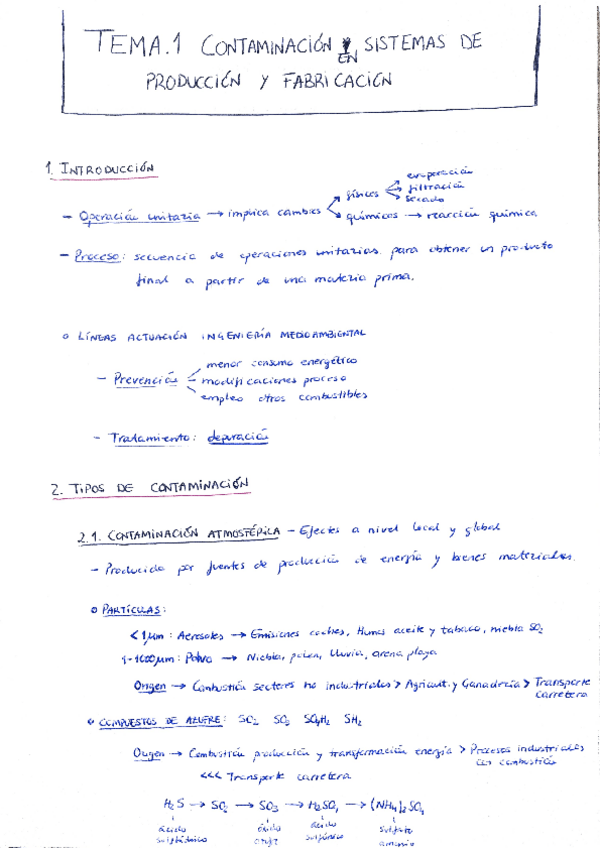 TEMA.1 CONTAMINACIÓN EN SISTEMAS DE
PRODUCCIÓN Y FABRICACIÓN
1. INTRODUCCIÓN
- Operación unitaria → implica cambios
físicos
evaporación
filtración
secado
químicos → reacción química
- Proceso: secuencia de operaciones unitarias para obtener un producto
final a partir de una materia prima.
○ LÍNEAS ACTUACIÓN INGENIERÍA MEDIOAMBIENTAL
- Prevención
menor consumo energético
modificaciones proceso
empleo otros combustibles
- Tratamiento: depuración
2. TIPOS DE CONTAMINACIÓN
2.1. CONTAMINACIÓN ATMOSFÉRICA - Efectos a nivel local y global
- Producida por fuentes de producción de energía y bienes materiales.
○ PARTÍCULAS:
< 1μm: Aerosoles → Emisiones coches, Humos aceite y tabaco, niebla SO2
1-1000μm: Polvo → Niebla, polen, lluvia, arena playa
Origen → Combustión sectores no industriales > Agricult. y Ganadería > Transporte
carretera
○ COMPUESTOS DE AZUFRE: SO2 SO3 SO4H2 SH2
Origen → Combustión producción y transformación energía > Procesos industriales
con combustión
<<< Transporte carretera
H2S → SO2 → SO3 → H2SO4 → (NH4)2SO4
ácido
sulfhídrico
ácido
sulfúrico
sulfato
amonio